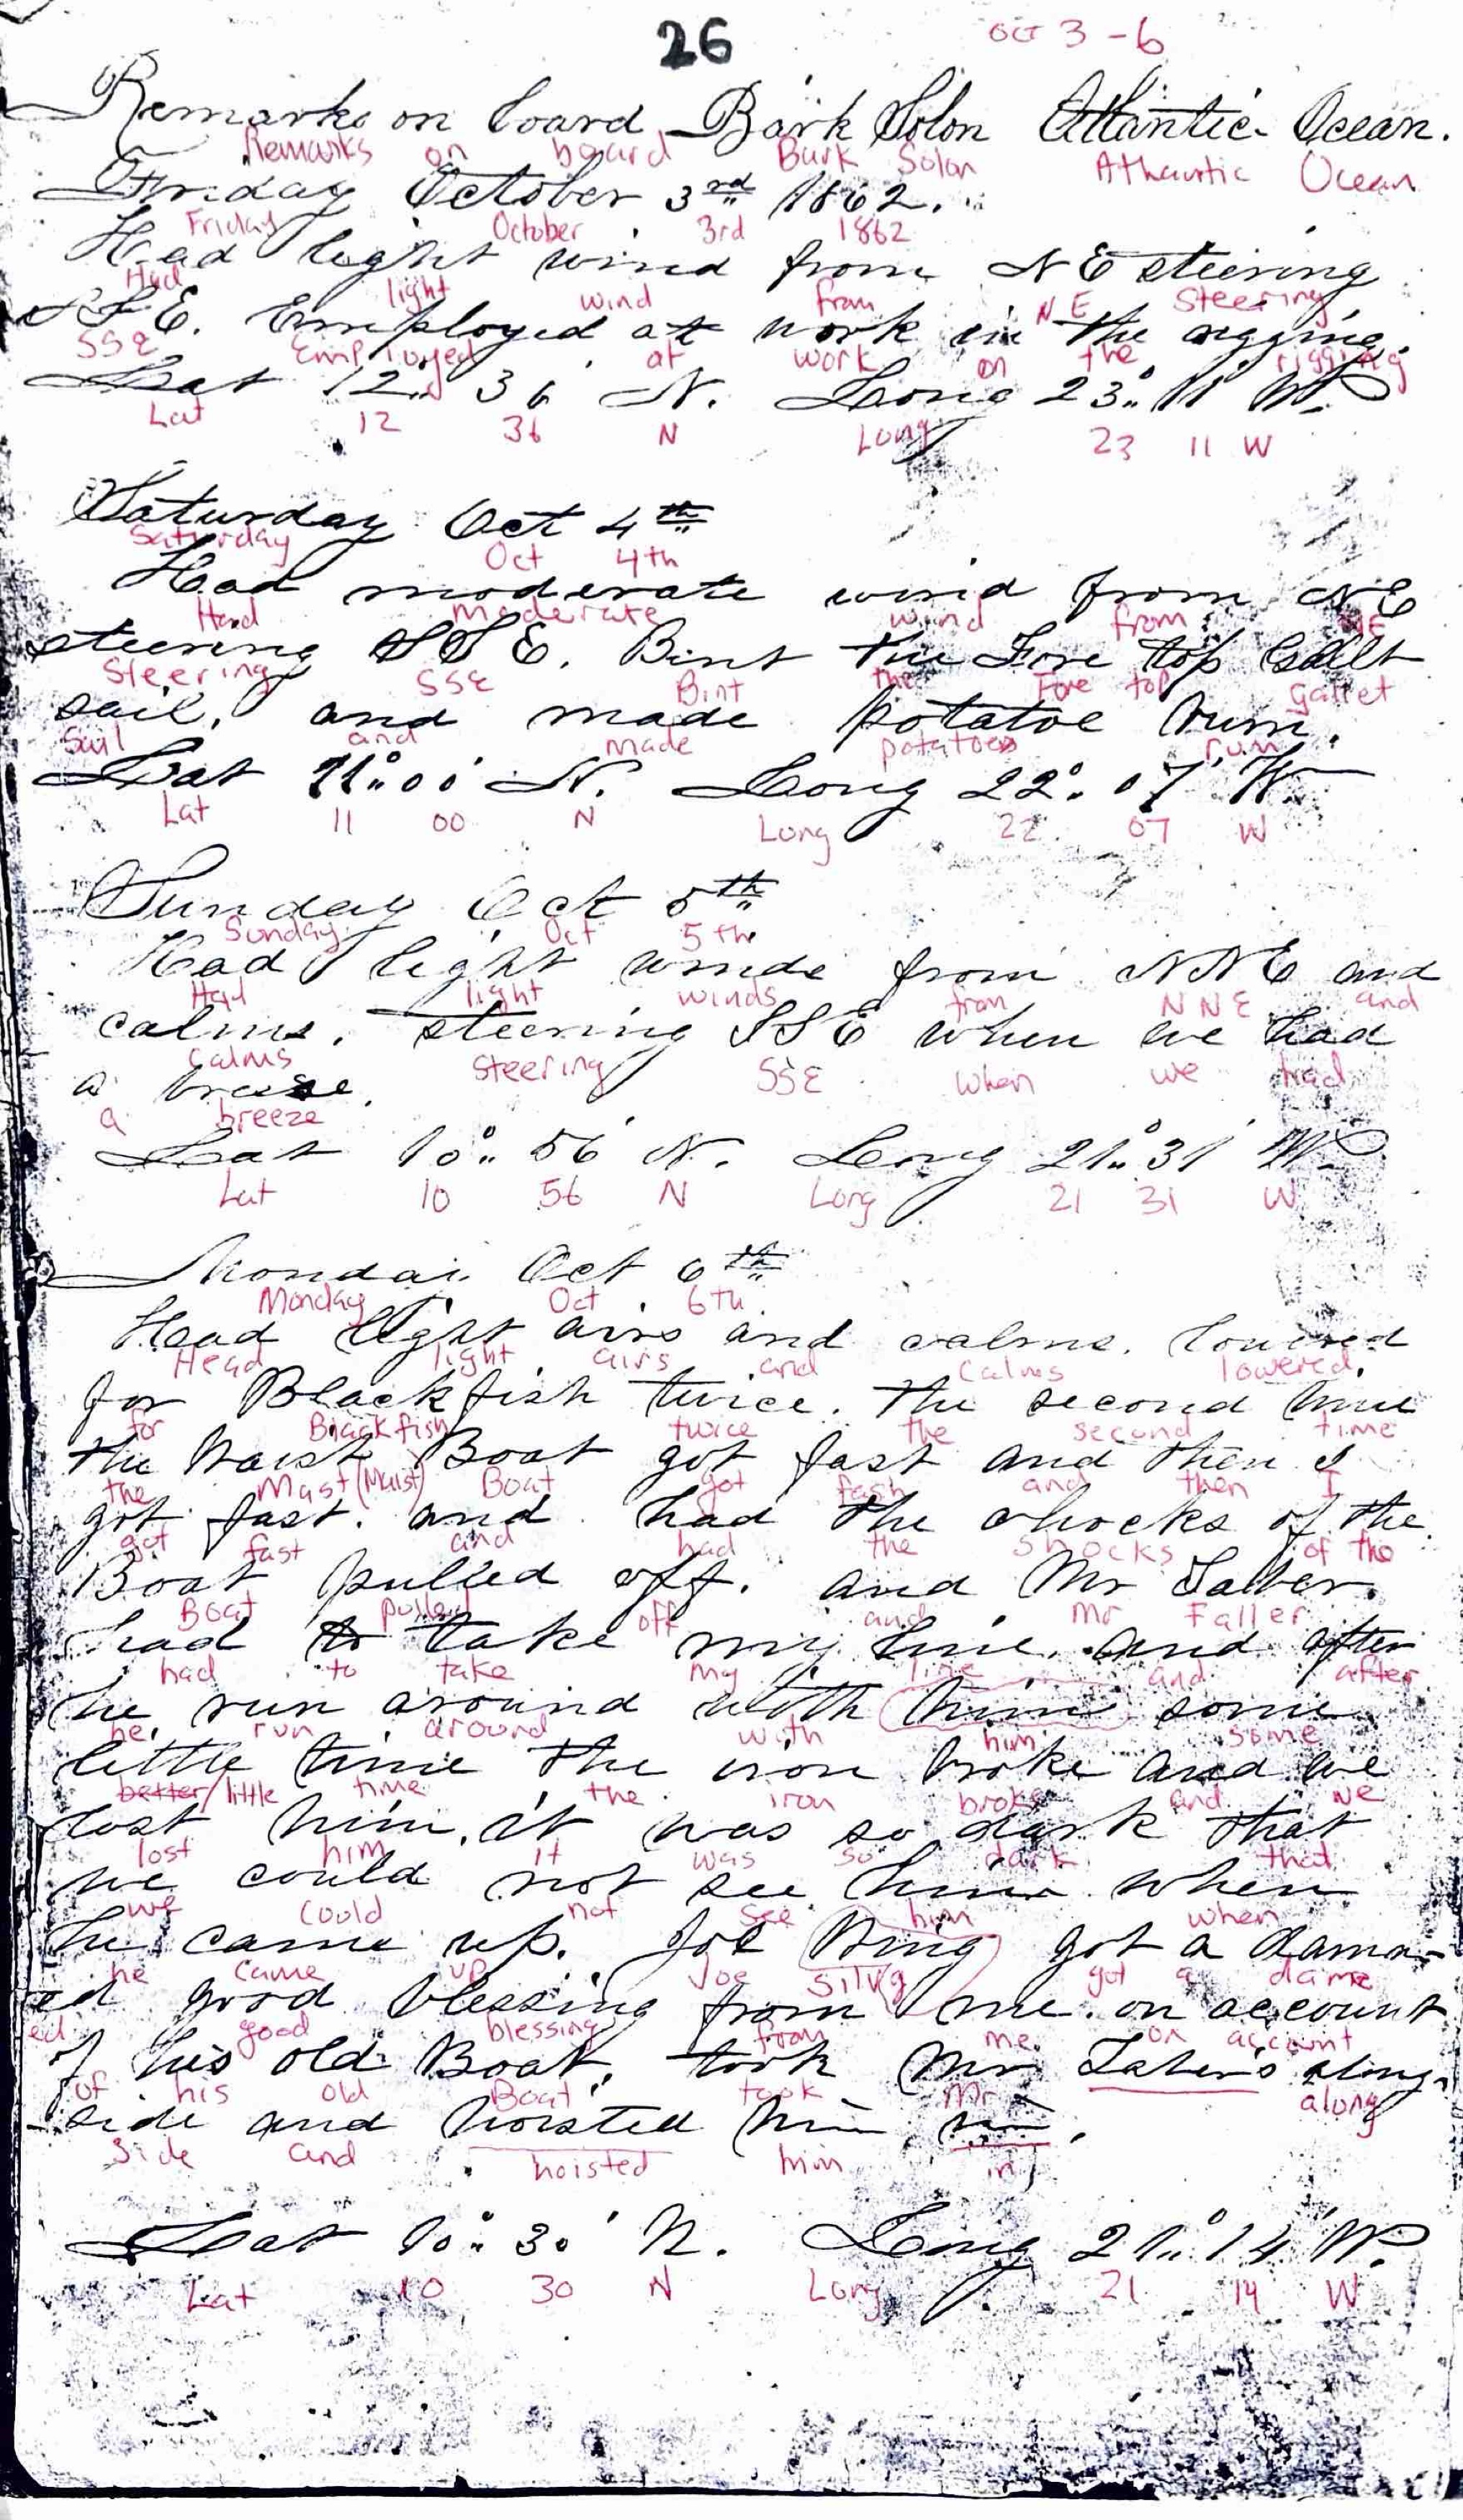 26
OCT 3-6
Remarks on board Bark Solon Atlantic Ocean.
Remarks on board Bark Solon Athauntic Ocean
Friday October 3rd 1862.
Friday October 3rd 1862
Had light wind from NE steering
Had light wind from NE Steering
SSE. Employed at work in the rigging.
SSE Employed at work on the rigging
Lat 12° 36' N. Long 23° 11' W.
Lat 12 36 N Long 23 11 W
Saturday Oct 4th
Saturday Oct 4th
Had moderate wind from NE
Had moderate wind from NE
steering SSE. Bint the Fore top Gallt
Steering SSE Bint the Fore top gallet
sail, and made potatoe bum.
Sail and made potatoes rum
Lat 11° 00' N. Long 22° 07' W
Lat 11 00 N Long 22 07 W
Sunday Oct 5th
Sunday Oct 5th
Had light winds from NNE and
Had light winds from NNE and
calms. steering SSE when we had
calms Steering SSE when we had
a breese.
a breeze
Lat 10° 56' N. Long 21° 31' W.
Lat 10 56 N Long 21 31 W
Monday Oct 6th
Monday Oct 6th
Head light airs and calms. lowered
Head light airs and Calms lowered.
for Blackfish twice. the second time
for Blackfish twice the second time
the Waist Boat got fast and then I
the Mast (Maist) Boat got fash and then I
got fast. and had the chocks of the
got fast and had the shocks of the
Boat pulled off. and Mr Taber.
Boat pulled off and Mr Faller
had to take my line. and after
had to take my line and after
he run around with him some
he run around with him some
little time the iron broke and we
better/little time the iron broke and we
lost him. it was so dark that
lost him it was so dark that
we could not see him when
we could not see him when
he came up. Joe King got a damn-
he came up Joe Silvg got a dame
ed good blessing from me on account
ed good blessing from me on account
of his old Boat, took Mr Taber's along-
of his old Boat took Mr along
side and hoisted him in.
side and hoisted him in
Lat 10° 30' N. Long 21° 14' W.
Lat 10 30 N Long 21 14 W